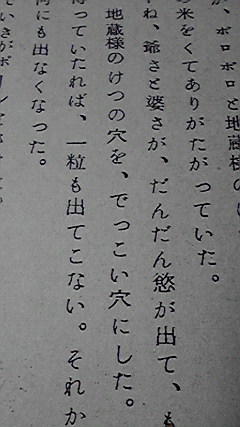 、ボロボロと地蔵様の
米をくてありがたがっていた。
ね、爺さと婆さが、だんだん慾が出て、も
地蔵様のけつの穴を、でっこい穴にした。
待っていたれば、一粒も出てこない。それか
何にも出なくなった。